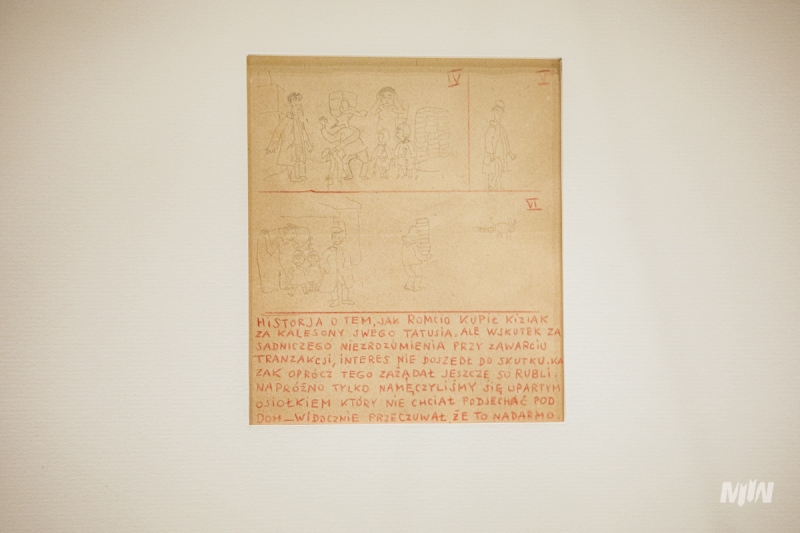 IV
V
VI
HISTORJA O TEM, JAK ROMCIO KUPIŁ KIZIAK
ZA KALESONY SWEGO TATUSIA. ALE WSKUTEK ZA
SADNICZEGO NIEZROZUMIENIA PRZY ZAWARCIU
TRANZAKCJI, INTERES NIE DOSZEDŁ DO SKUTKU. KA
ZAK OPRÓCZ TEGO ZAŻĄDAŁ JESZCZE 50 RUBLI.
NAPRÓŻNO TYLKO NAMĘCZYLIŚMY SIĘ UPARTYM
OSIOŁKIEM KTÓRY NIE CHCIAŁ PODJECHAĆ POD
DOM — WIDOCZNIE PRZECZUWAŁ ŻE TO NADARMO.